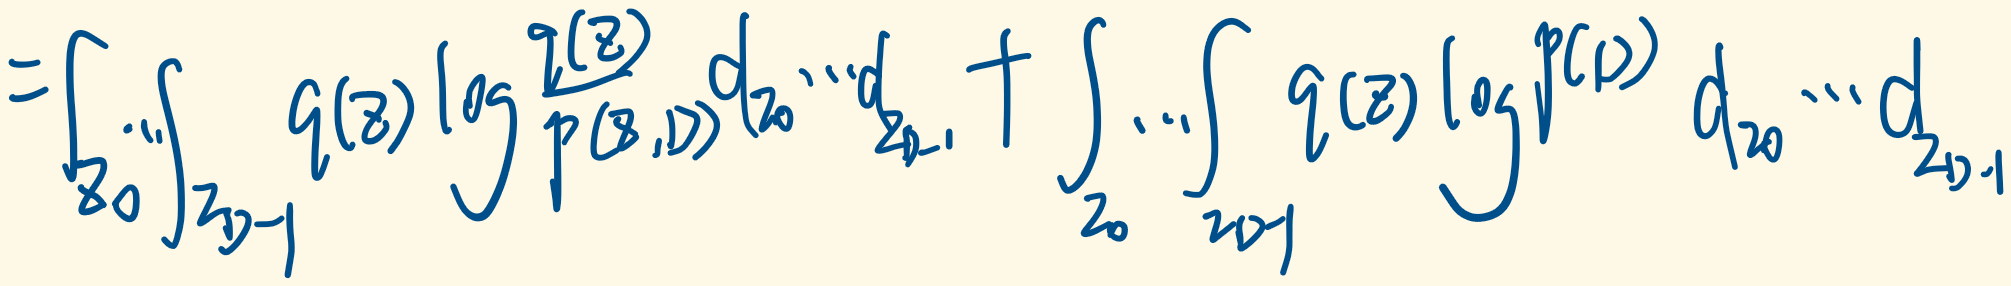 = ∫_{z_0} ... ∫_{z_{D-1}} q(z) log \frac{q(z)}{p(z,D)} d_{z_0} ... d_{z_{D-1}} + ∫_{z_0} ... ∫_{z_{D-1}} q(z) log p(D) d_{z_0} ... d_{z_{D-1}}